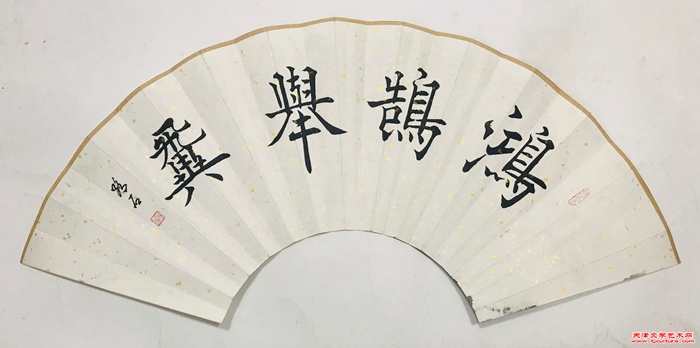 鴻鵠舉翼
天津文学艺术网
www.tjculture.com